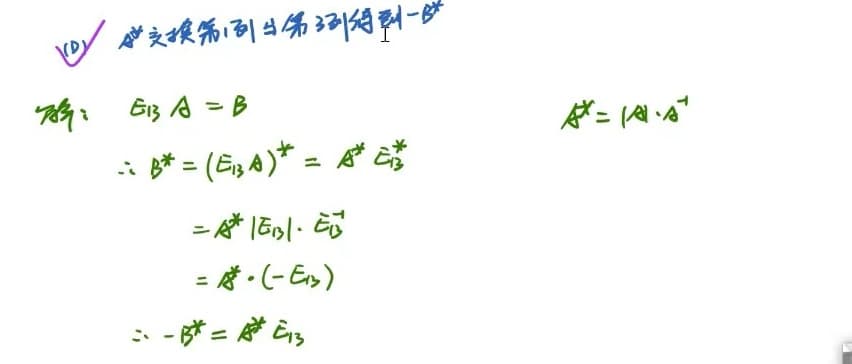 (D) A* 交换第1列与第3列得到 -B*
解: E₁₃ A = B
A* = |A|·A⁻¹
∴ B* = (E₁₃ A)* = A* E₁₃*
= A* |E₁₃| · E₁₃⁻¹
= A* · (-E₁₃)
∴ -B* = A* E₁₃